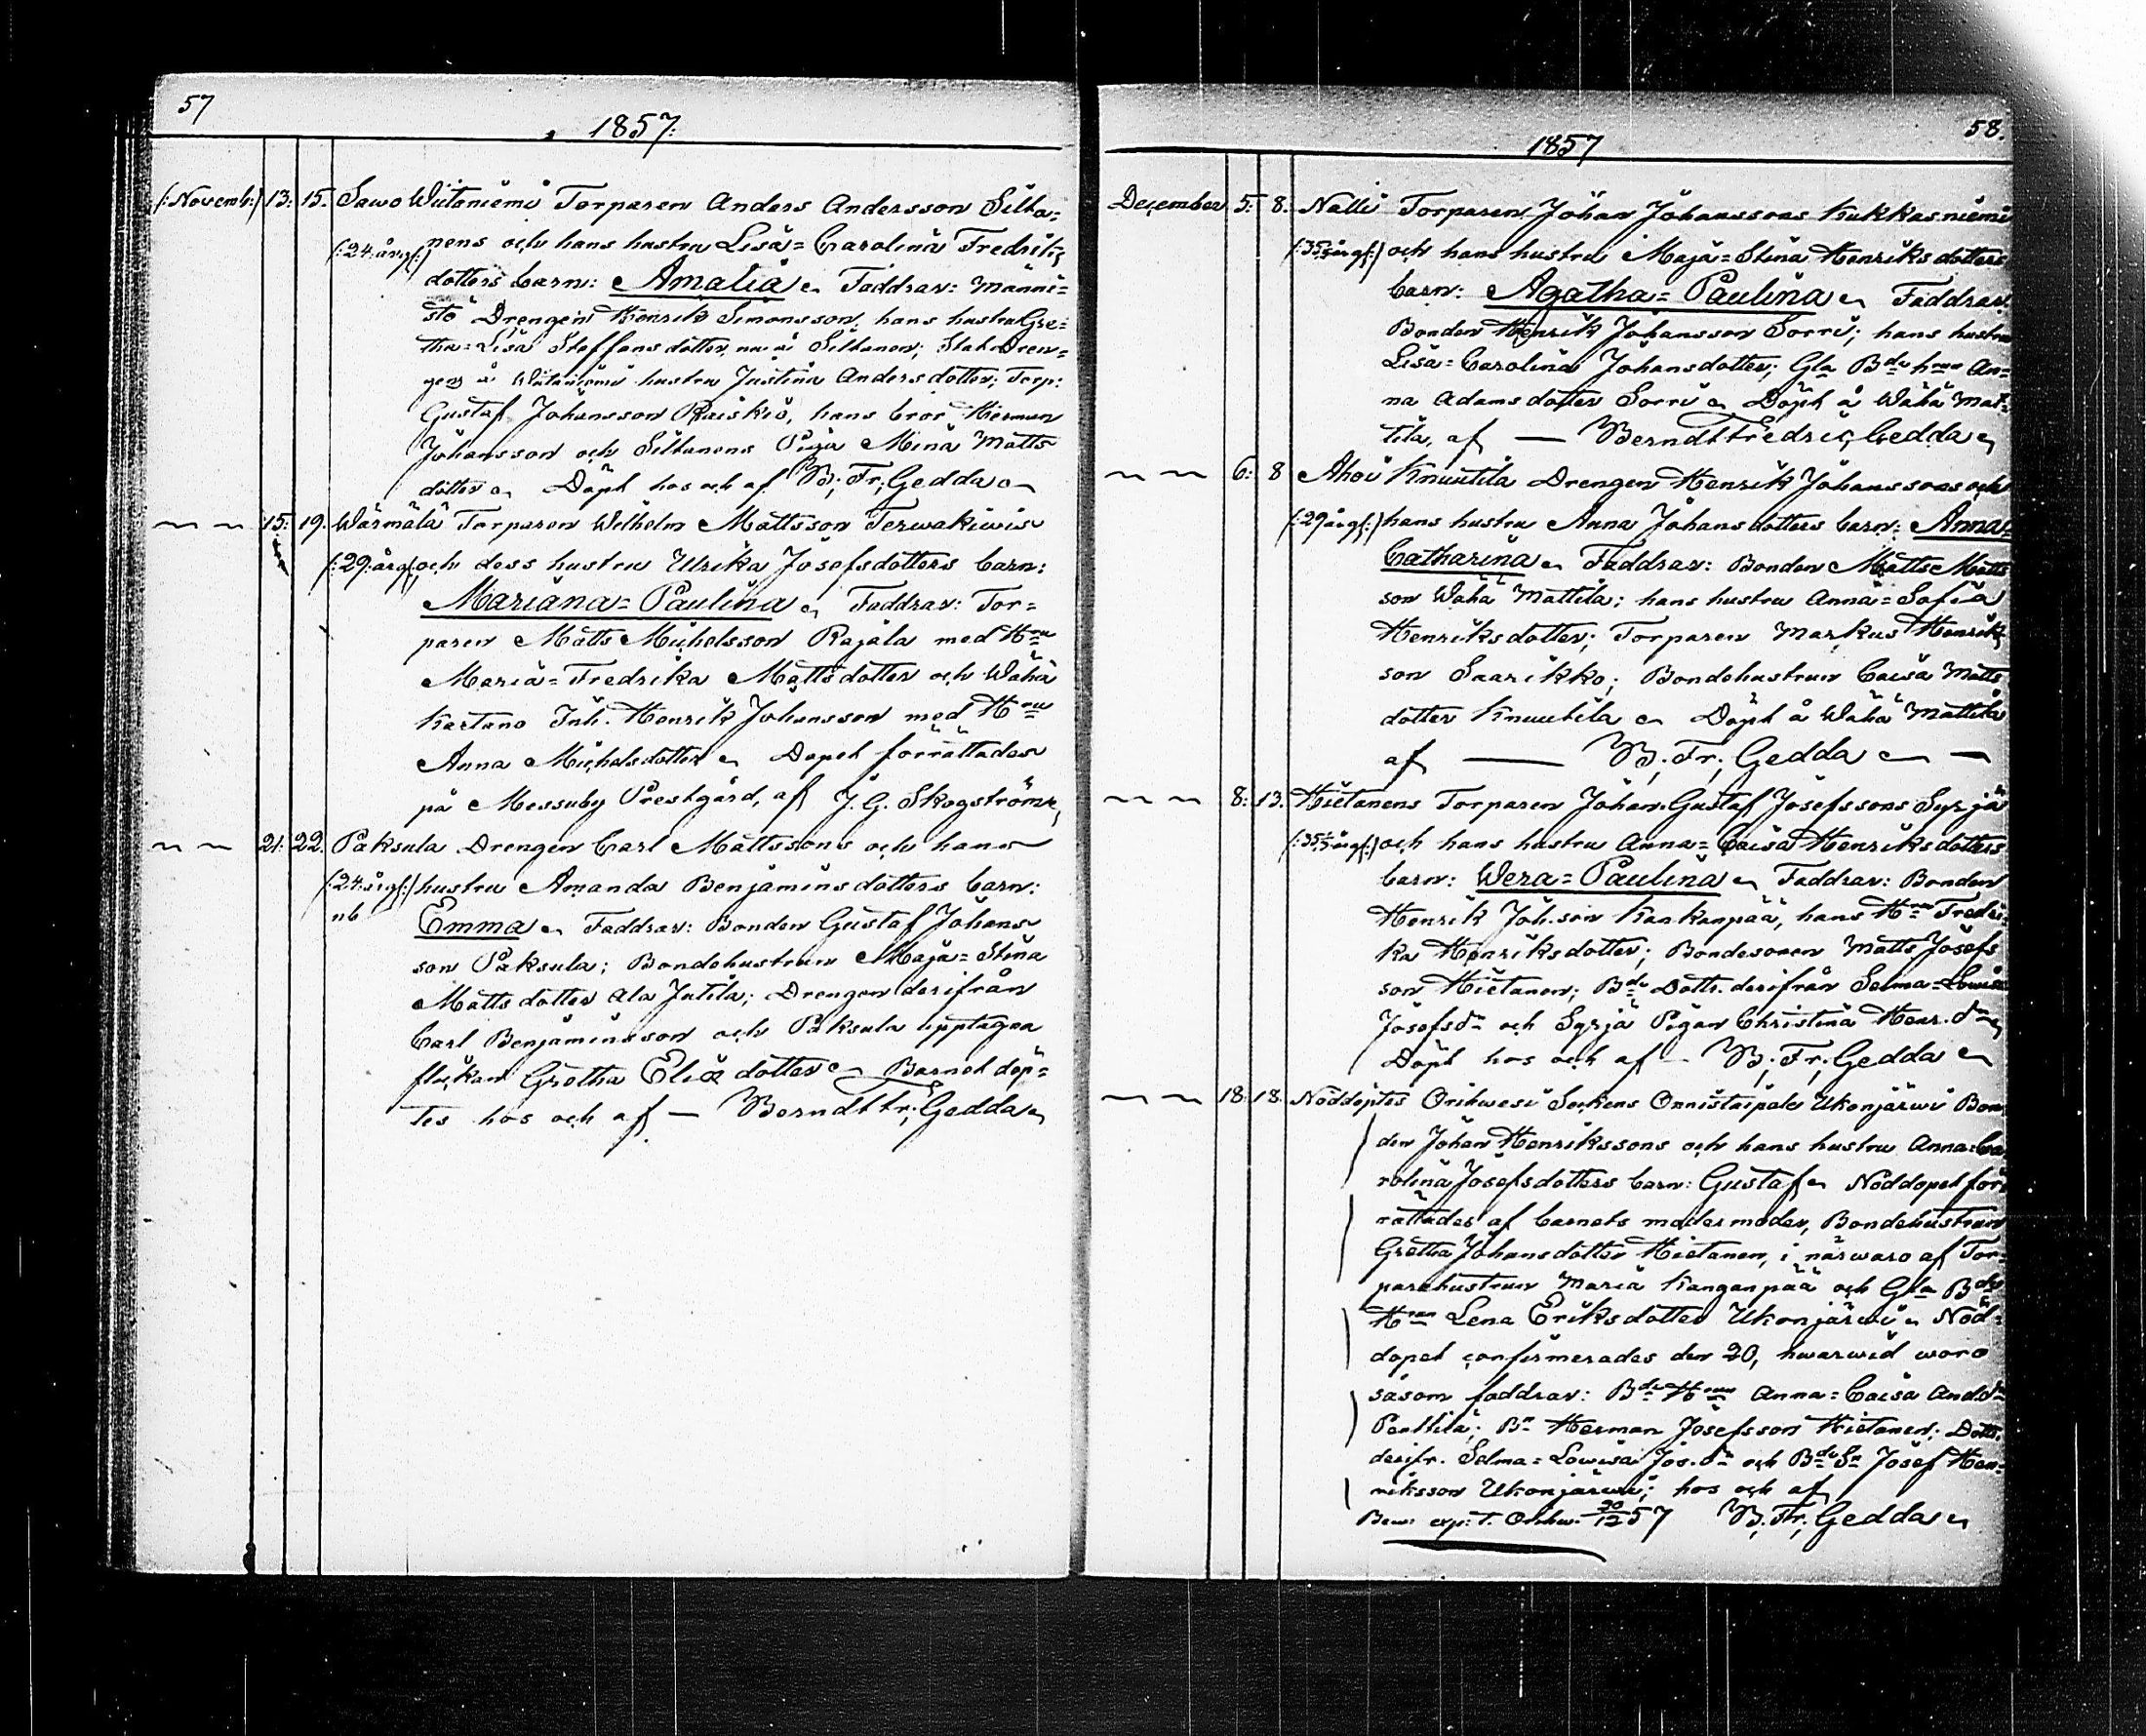 57
1857.
(:Novemb:) 13: 15. Sawo Wiitaniemi Torparen Anders Andersson Silta=
(:24:årig:) nens och hans hustru Lisa=Carolina Fredriks
dotters barn: Amalia Faddrar: Männi=
stö Drengen Henrik Simonsson, hans hustru Gre=
tha=Lisa Steffansdotter, Siltanen; Statdren=
gens å Wiitaniemi hustru Justina Andersdotter; Torp:
Gustaf Johansson Raiskiö, hans bror Herman
Johansson och Siltanens Piga Mina Matts
dotter Döpt hos och af B. Fr. Gedda
15: 19. Wärmälä Torparen Wilhelm Mattsson Terwakiwis
(:29:årg:) och dess hustru Ulrika Josefsdotters barn:
Mariana=Paulina Faddrar: Tor=
paren Matts Michelsson Rajala med Hru
Maria=Fredrika Mattsdotter och Wähä
Kartano Inh. Henrik Johansson med Hru
Anna Michelsdotter Dopet förrättades
på Messuby Prestgård, af J. G. Skogström
21: 22. Paksula Drengen Carl Mattssons och hans
(:24:årg:) hustru Amanda Benjaminsdotters barn:
nb Emma Faddrar: Bonden Gustaf Johans
son Paksula; Bondehustrun Maja=Stina
Mattsdotter Ala Jutila; Drengen derifrån
Carl Benjaminsson och Paksula upptagna
flickan Gretha Eliædotter Barnet döp=
tes hos och af — Berndt Fr. Gedda
58.
1857
December 5: 8. Nalli Torparen Johan Johanssons Kukkasniemi
(:35:årg:) och hans hustru Maja=Stina Henriksdotters
barn: Agatha=Paulina Faddrar:
Bonden Henrik Johansson Sorri; hans hustru
Lisa=Carolina Johansdotter; Gla Bde hrun An=
na Adamsdotter Sorri Döpt å Wähä Mat=
tila, af — Berndt Fredric Gedda
6: 8 Ahoi Knuutila Drengen Henrik Johanssons och
(:29årg:) hans hustru Anna Johansdotters barn: Anna=
Catharina Faddrar: Bonden Matts Matts
son Wähä Mattila; hans hustru Anna=Sofia
Henriksdotter; Torparen Markus Henriks
son Saarikko; Bondehustrun Caisa Matts
dotter Knuutila Döpt å Wähä Mattila
af — B. Fr. Gedda —
8: 13. Hietanens Torparen Johan Gustaf Josefssons Syrjä
(:35:årg:) och hans hustru Anna=Caisa Henriksdotters
barn: Wera=Paulina Faddrar: Bonden
Henrik Joh.son Kankanpää, hans Hru Fredri=
ka Henriksdotter; Bondesonen Matts Josefs
son Hietanen; Bde Dottr. derifrån Selma=Lowisa
Josefsdr och Syrjä Pigan Christina Henr. dr
Döpt hos och af — B. Fr. Gedda
18: 18. Nöddöptes Orihwesi Sockens Onnistaipale Ukonjärwi Bon
den Johan Henrikssons och hans hustru Anna=Ca
rolina Josefsdotters barn: Gustaf Nöddopet för
rättades af barnets modermoder, Bondehustrun
Gretha Johansdotter Hietanen, i närwaro af Tor=
parehustrun Maria Kanganpää och Gla Bde
Hrun Lena Eriksdotter Ukonjärwi Nöd=
dopet confirmerades den 20, hwarwid woro
såsom faddrar: Bde Hrun Anna=Caisa And.dr
Penttilä; Bn Herman Josefsson Hietanen; Dottr.
derifr. Selma=Lowisa Jos.dr och Bde Sn Josef Hen=
riksson Ukonjärwi; hos och af
Bew. exp. t. Orihw. 20/12 57 B. Fr. Gedda